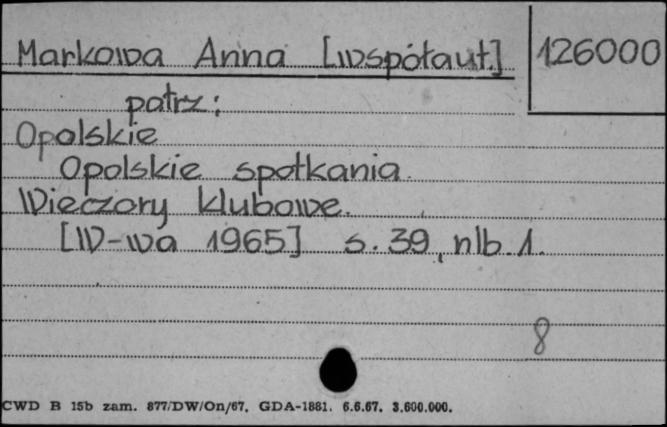 Markowa Anna [współaut.] 126000
patrz:
Opolskie
Opolskie spotkania.
Wieczory klubowe.
[W-wa 1965] s. 39, nlb. 1.
8
CWD B 15b zam. 877/DW/On/67. GDA-1881. 6.6.67. 3.600.000.